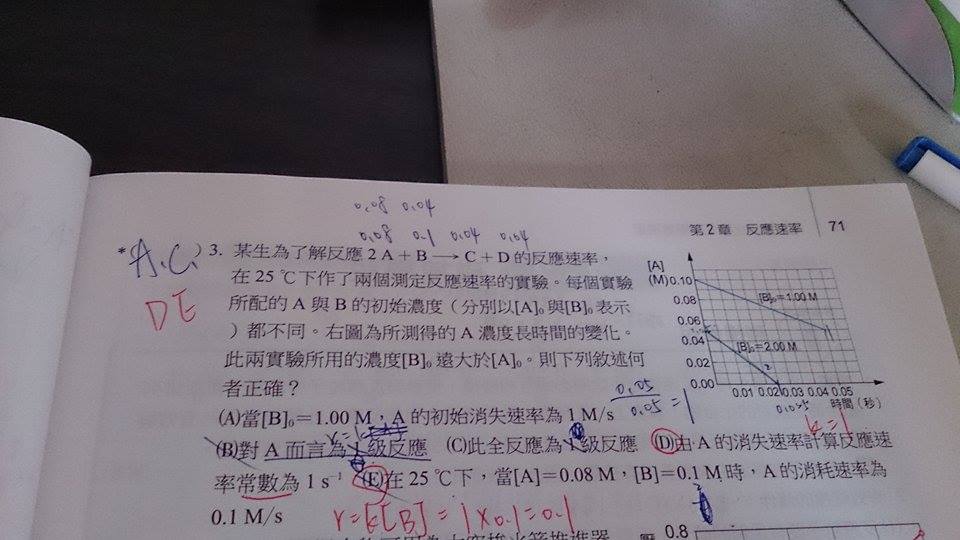 0.08 0.04
0.08 0.1 0.04 0.04
第2章 反應速率 71
*A.C. ) 3. 某生為了解反應 2 A + B ⟶ C + D 的反應速率,
DE
在 25 ℃下作了兩個測定反應速率的實驗。每個實驗
所配的 A 與 B 的初始濃度(分別以[A]₀與[B]₀表示
)都不同。右圖為所測得的 A 濃度長時間的變化。
此兩實驗所用的濃度[B]₀遠大於[A]₀。則下列敘述何
者正確?
[A]
(M) 0.10
0.08
0.06
0.04
0.02
0.00
[B]₀=1.00 M
[B]₀=2.00 M
0.01 0.02 0.03 0.04 0.05
0.025
時間(秒)
0.05
0.05 = 1
k=1
(A)當[B]₀=1.00 M,A 的初始消失速率為 1 M/s
(B)對 A 而言為 1 級反應 (C)此全反應為 1 級反應 (D)由 A 的消失速率計算反應速
率常數為 1 s⁻¹ (E)在 25 ℃下,當[A]=0.08 M,[B]=0.1 M 時,A 的消耗速率為
0.1 M/s
r=k[B]=1×0.1=0.1
0.8